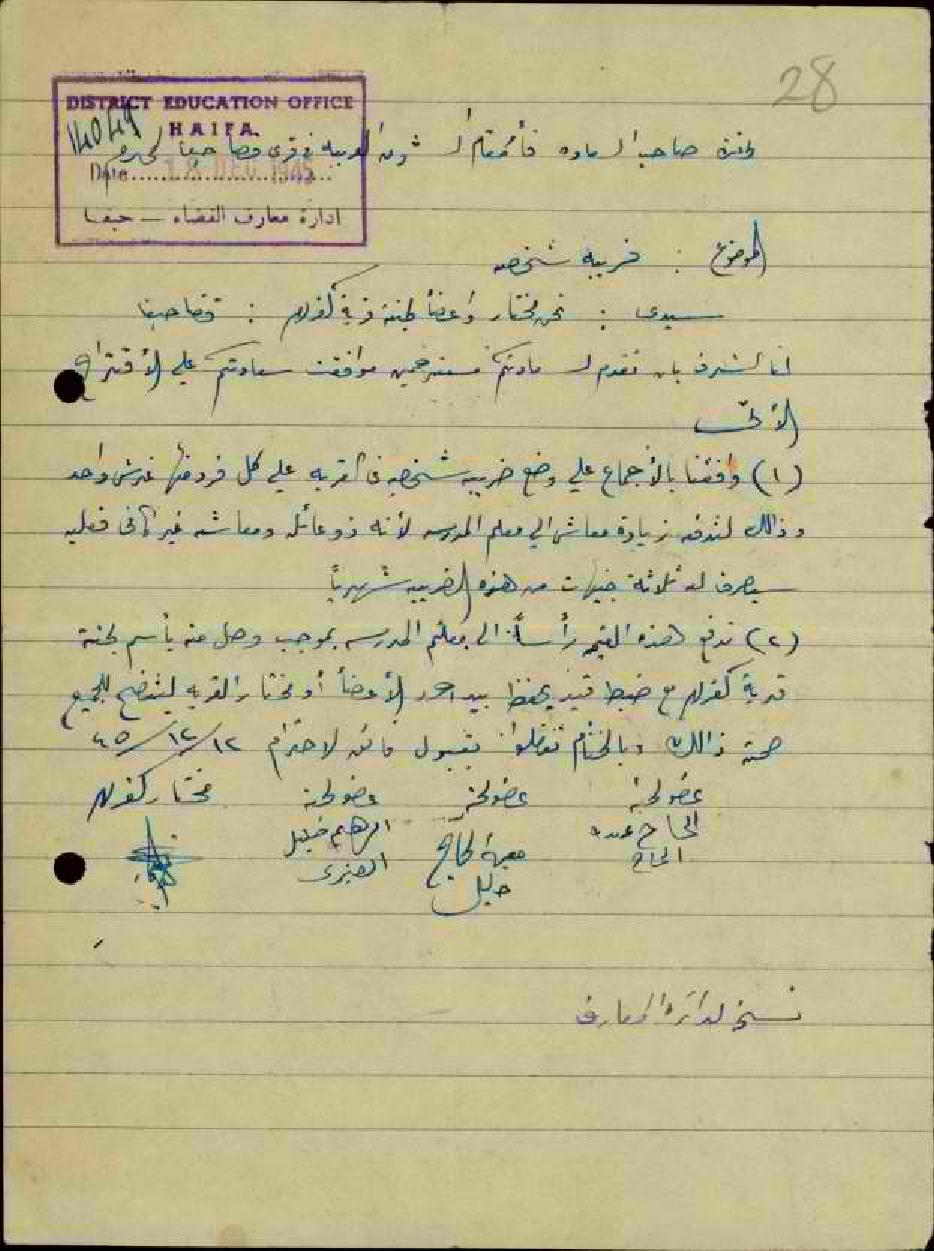 28
DISTRICT EDUCATION OFFICE
HAIFA.
Date 18 DEC 1945
ادارة معارف القضاء — حيفا
حضرة صاحب السعاده قائمقام الشؤون العربيه في قرى قضا حيفا المحترم
الموضوع : ضريبه شخصيه
سيدى : نحن مختار وأعضأ لجنة قرية كفرلام : قضا حيفا
لنا الشرف بان نتقدم لسعادتكم مسترحمين موافقت سعادتكم على الأقتراح
الأتى
(١) وافقنا بالأجماع علي وضع ضريبه شخصيه في القريه علي كل فرد منها غرش واحد
وذالك لندفع زيادة معاش الي معلم المدرسه لأنه ذو عائله ومعاشه غير كافى فعليه
سيصرف له ثلاثة جنيهات من هذه الضريبه شهرياً
(٢) تدفع هذه القيم رأساً الى معلم المدرسه بموجب وصل منه بأسم لجنة
قرية كفرلام مع ضبط قيد يحفظ بيد احد الأعضأ أو مختار القريه ليتضح للجميع
صحة ذالك وبالختام تفضلوا بقبول فائق لاحترام ١٢/١٢/٤٥
عضو لجنة عضو لجنة عضو لجنة مختار كفرلام
الحاج عبده ابراهيم خليل
الحاج
نسخه لدائرة المعارف